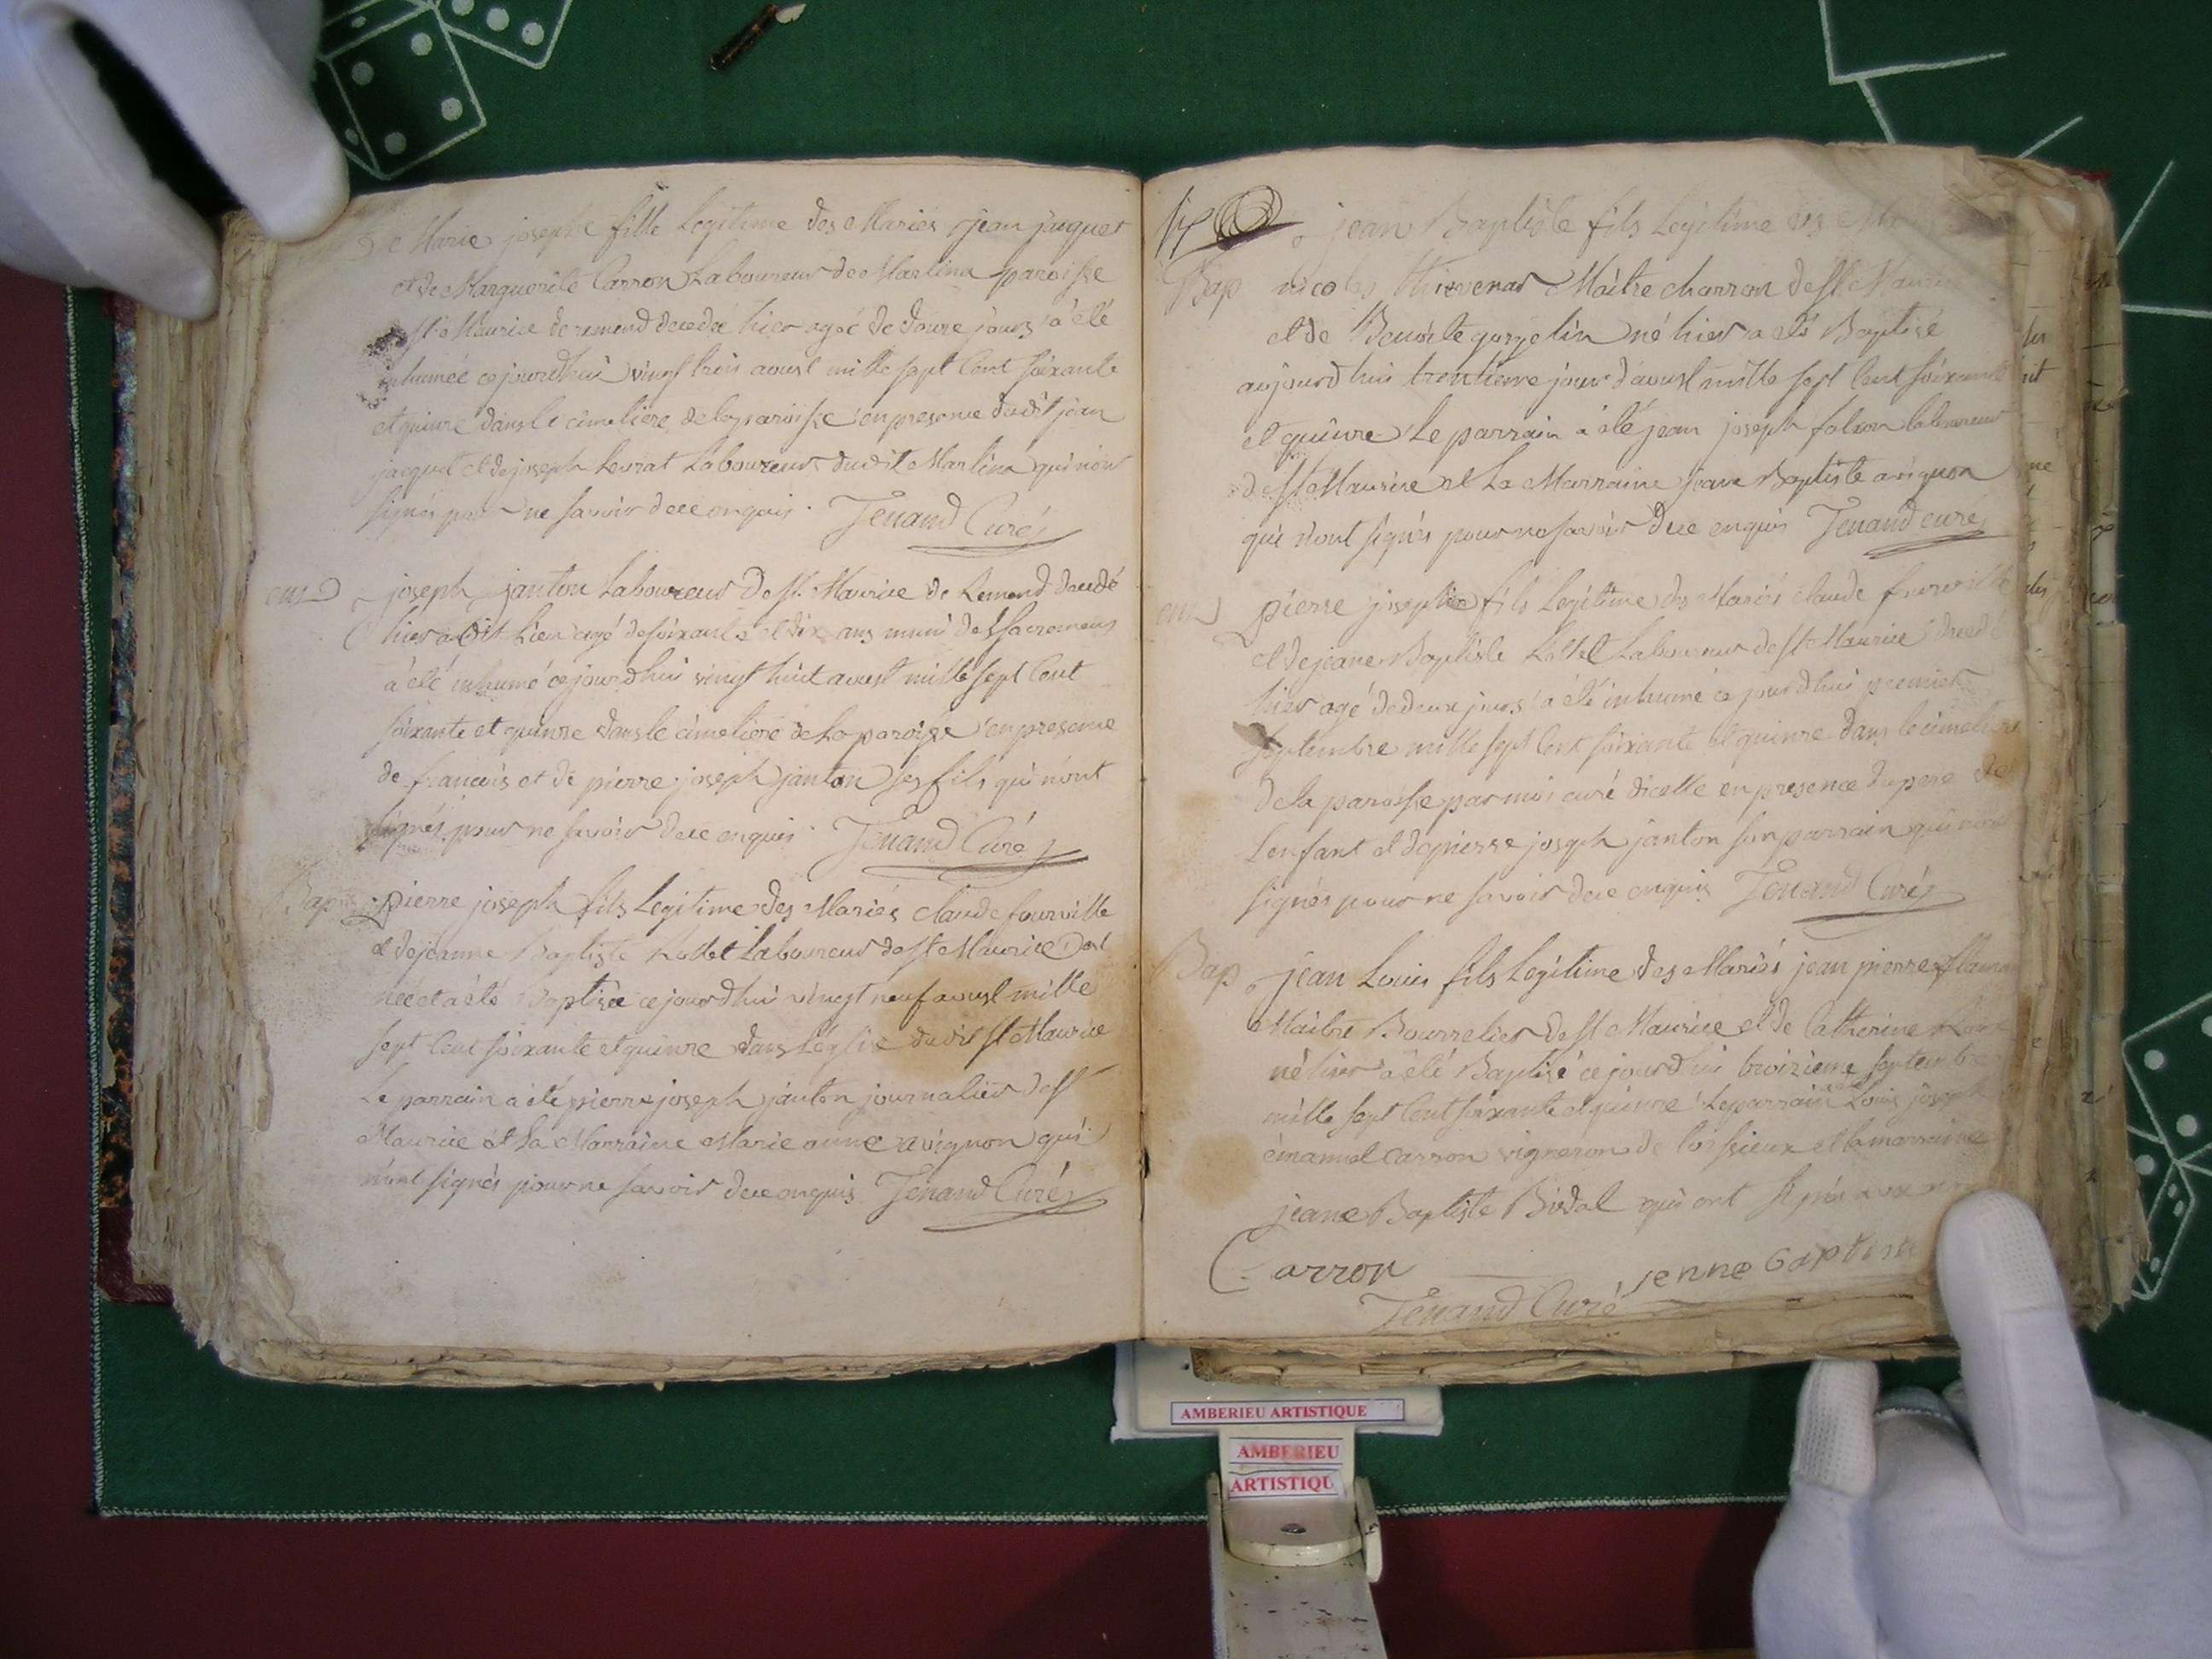 Marie josephe fille Legitime des Mariés jean jacquet
et de Marguerite Carron Laboureur de Martina paroisse
st Maurice de remend decedée hier agée de douze jours a été
inhumée cejourdhui vingt trois aoust mille sept Cent soixante
et quinze dans le cimetiere de la paroisse en presence dudit jean
jacquet et de joseph Levrat Laboureur dudit Martina qui n'ont
signés pour ne savoir de ce enquis. Tenand Curé
joseph janton Laboureur de st. Maurice de Remend decedé
hier audit Lieu agé de soixante et dix ans muni des sacremens
a été inhumé cejourdhui vingt huit aoust mille sept Cent
soixante et quinze dans le cimetiere de La paroisse en presence
de francois et de pierre joseph janton ses fils qui n'ont
signés pour ne savoir de ce enquis. Tenand Curé
Bap pierre joseph fils Legitime des Mariés claude fourville
et de jeanne Baptiste Rollet Laboureur de st Maurice est
née et a été Baptisée cejourdhui vingt neuf aoust mille
sept Cent soixante et quinze dans L'eglise dudit st Maurice
Le parrain a été pierre joseph janton journalier de st
Maurice et La Marraine Marie anne avignon qui
n'ont signés pour ne savoir de ce enquis Tenand Curé
jean Baptiste fils Legitime des
Bap nicolas thievenar Maître charron de st Maurice
et de Benoite né hier a eté Baptisé
aujourd'hui trentieme jour d'aoust mille sept Cent soixante
et quinze Le parrain a été jean joseph falcon laboureur
de st Maurice et La Marraine jeane Baptiste avignon
qui n'ont signés pour ne savoir de ce enquis Tenand curé
pierre joseph fils Legitime des Mariés claude fourville
et de jeane Baptiste Rollet Laboureur de st Maurice decedé
hier agé de deux jours a été inhumé ce jourdhui premier
septembre mille sept Cent soixante et quinze dans le cimetiere
de la paroisse par moi curé d'icelle en presence du pere de
L'enfant et de pierre joseph janton son parrain qui n'ont
signés pour ne savoir de ce enquis Tenand Curé
Bap jean Louis fils Legitime des Mariés jean pierre
Maitre Bourrelier de st Maurice et de Catherine
né hier a été Baptisé cejourdhui troizieme septembre
mille sept Cent soixante et quinze Le parrain Louis joseph
emanuel Carron vigneron de Loissieux et la marraine
jeane Baptiste Bidal qui ont signés
Carron jenne Baptiste
Tenand Curé
AMBERIEU ARTISTIQUE
AMBERIEU
ARTISTIQU